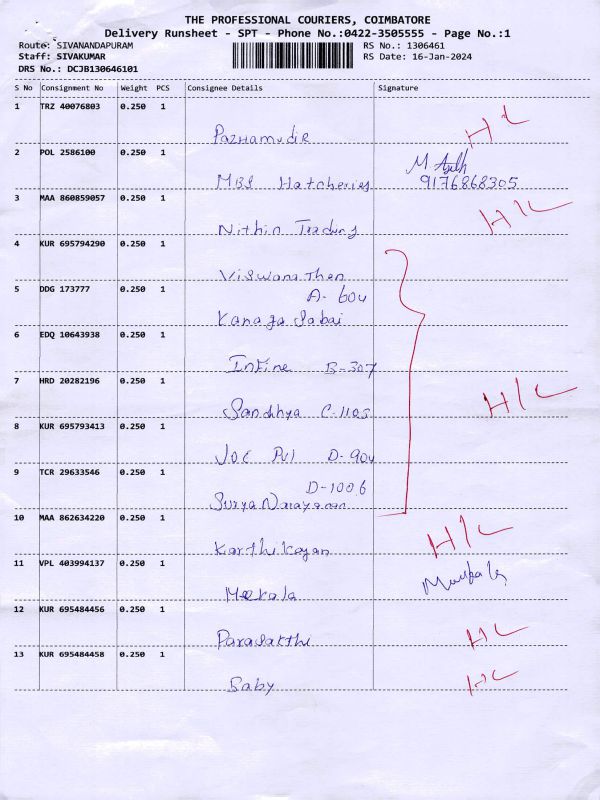 THE PROFESSIONAL COURIERS, COIMBATORE
Delivery Runsheet - SPT - Phone No.:0422-3505555 - Page No.:1
Route: SIVANANDAPURAM RS No.: 1306461
Staff: SIVAKUMAR RS Date: 16-Jan-2024
DRS No.: DCJB130646101
S No Consignment No Weight PCS Consignee Details Signature
1 TRZ 40076803 0.250 1
Pazhamudir H L
2 POL 2586100 0.250 1
MBS Hatcheries 9176868305
3 MAA 860859057 0.250 1
Nithin Trading H/L
4 KUR 695794290 0.250 1
Viswanathen
A-604
5 DDG 173777 0.250 1
Kanaga Sabai
6 EDQ 10643938 0.250 1
Infine B-307
7 HRD 20282196 0.250 1
Sandhya C-1103 H/L
8 KUR 695793413 0.250 1
Joe Pvl D-904
9 TCR 29633546 0.250 1
D-1006
SuryaNarayanan
10 MAA 862634220 0.250 1
Karthikeyan H/L
11 VPL 403994137 0.250 1
Mekala
12 KUR 695484456 0.250 1
Parasakthi HL
13 KUR 695484458 0.250 1
Baby HL